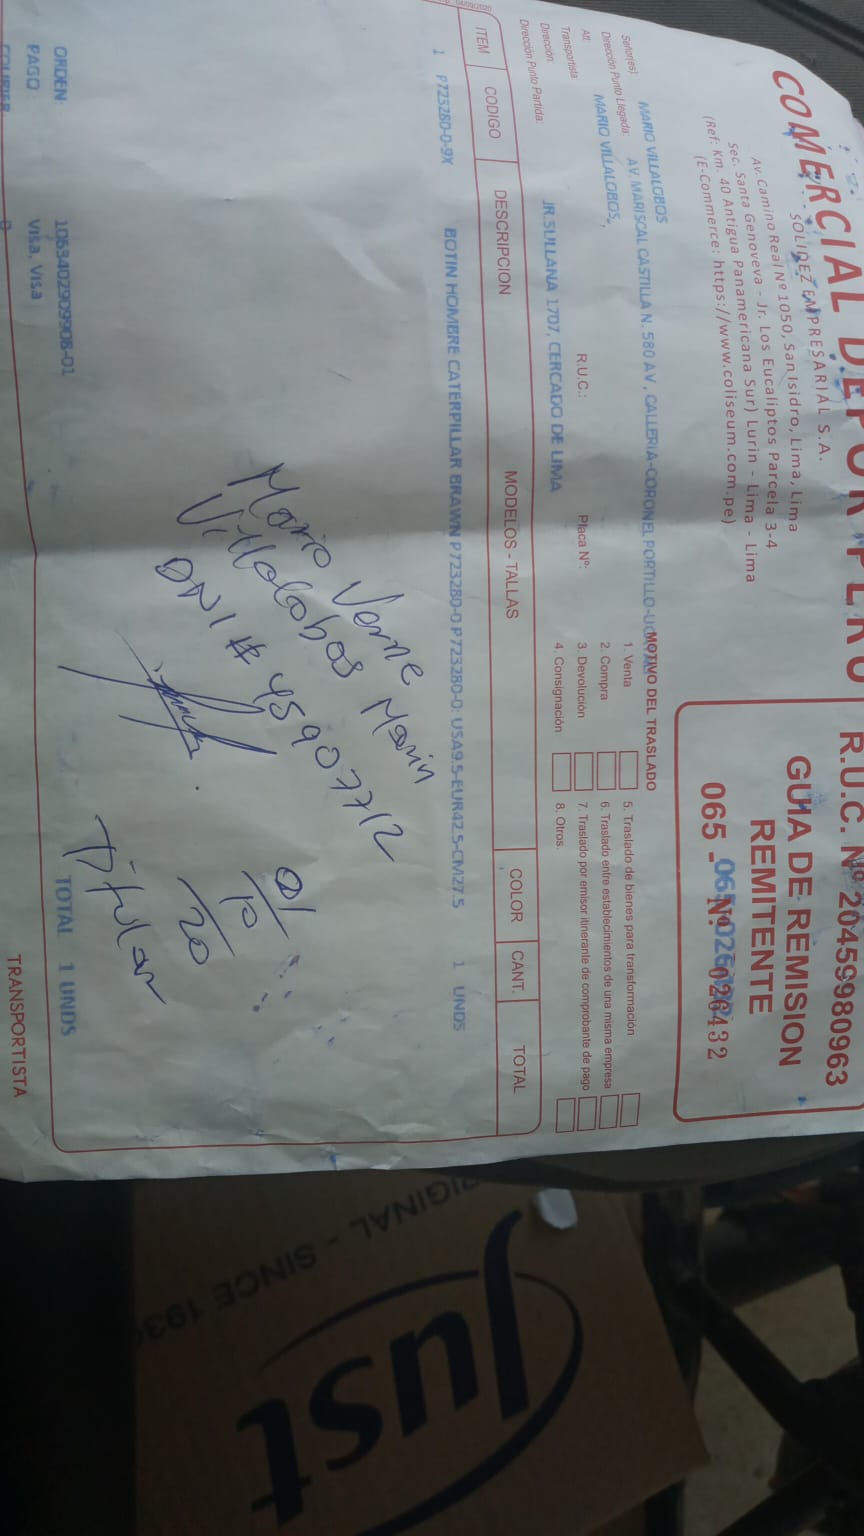 COMERCIAL DEPOR PERU
SOLIDEZ EMPRESARIAL S.A.
Av. Camino Real Nº 1050, San Isidro, Lima, Lima
Sec. Santa Genoveva - Jr. Los Eucaliptos Parcela 3-4
(Ref: Km. 40 Antigua Panamericana Sur) Lurin - Lima - Lima
(E-Commerce: https://www.coliseum.com.pe)
R.U.C. Nº 20459980963
GUIA DE REMISION
REMITENTE
065 - Nº 026432
Señor(es): MARIO VILLALOBOS
Dirección Punto Llegada: AV. MARISCAL CASTILLA N. 580 AV , CALLERIA-CORONEL PORTILLO-
Att: MARIO VILLALOBOS,
Transportista: R.U.C.: Placa Nº:
Dirección: JR.SULLANA 1707, CERCADO DE LIMA
Dirección Punto Partida:
MOTIVO DEL TRASLADO
1. Venta 5. Traslado de bienes para transformación
2. Compra 6. Traslado entre establecimientos de una misma empresa
3. Devolución 7. Traslado por emisor itinerante de comprobante de pago
4. Consignación 8. Otros.
04/09/2020
ITEM CODIGO DESCRIPCION MODELOS - TALLAS COLOR CANT. TOTAL
1 P723280-0-9X BOTIN HOMBRE CATERPILLAR BRAWN P723280-0 P723280-0: USA9.5-EUR42.5-CM27.5 1 UNDS
Mario Verne
Villalobos Marin
DNI # 45907712
01/10/20
Titular
ORDEN: 1063402909906-01 TOTAL 1 UNDS
PAGO : Visa, Visa
COURIER
TRANSPORTISTA
ORIGINAL - SINCE 193
Just